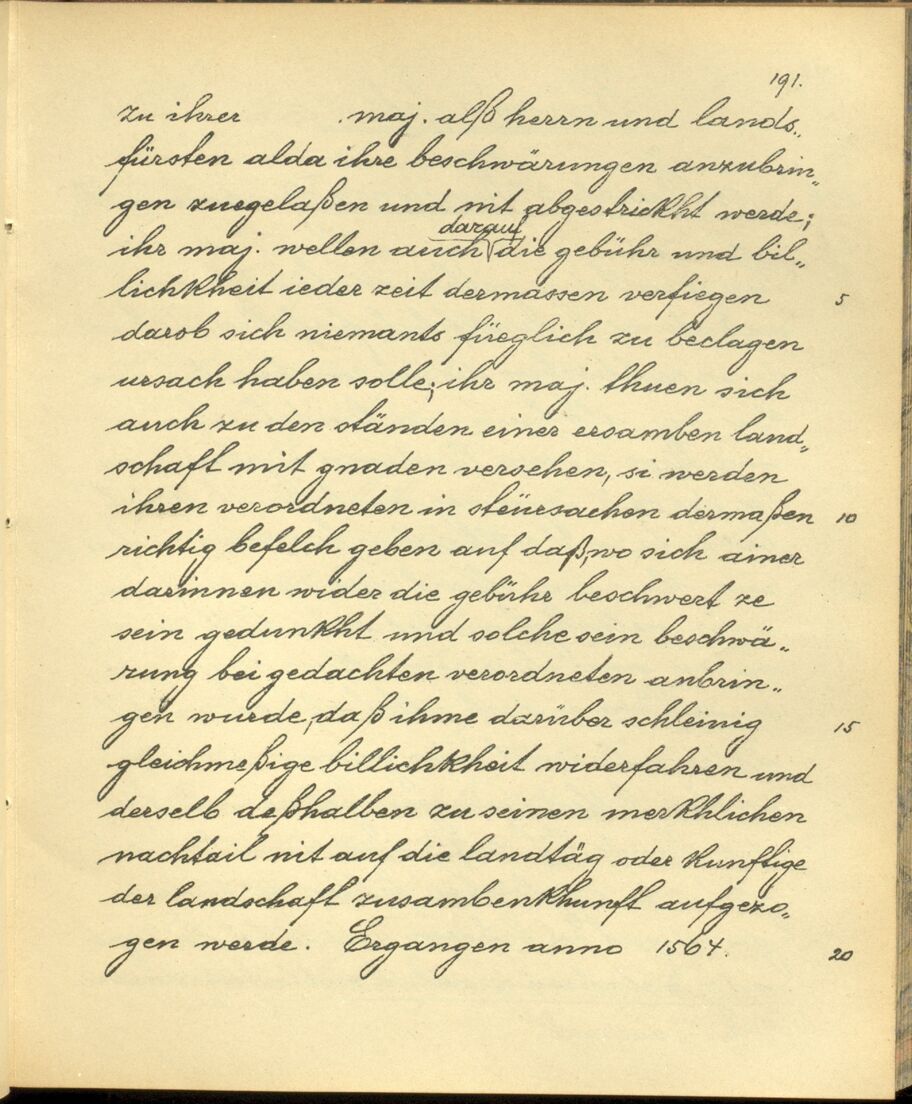 191.
zu ihrer . maj. alß herrn und lands„
fürsten alda ihre beschwärungen anzubrin„
gen zuegelaßen und nit abgestrickht werde;
darauf
ihr maj. wellen auch die gebühr und bil„
lichkheit ieder zeit dermassen verfiegen 5
darob sich niemants füeglich zu beclagen
ursach haben solle; ihr maj. thuen sich
auch zu den ständen einer ersamben land„
schaft mit gnaden versehen, si werden
ihren verordneten in steüersachen dermaßen 10
richtig befelch geben auf daß, wo sich ainer
darinnen wider die gebühr beschwert ze
sein gedunkht und solche sein beschwä„
rung bei gedachten verordneten anbrin„
gen wurde, daß ihme darüber schleinig 15
gleichmeßige billichkheit widerfahren und
derselb deßhalben zu seinen merkhlichen
nachtail nit auf die landtäg oder kunftige
der landschaft zusambenkhunft aufgezo„
gen werde. Ergangen anno 1564. 20